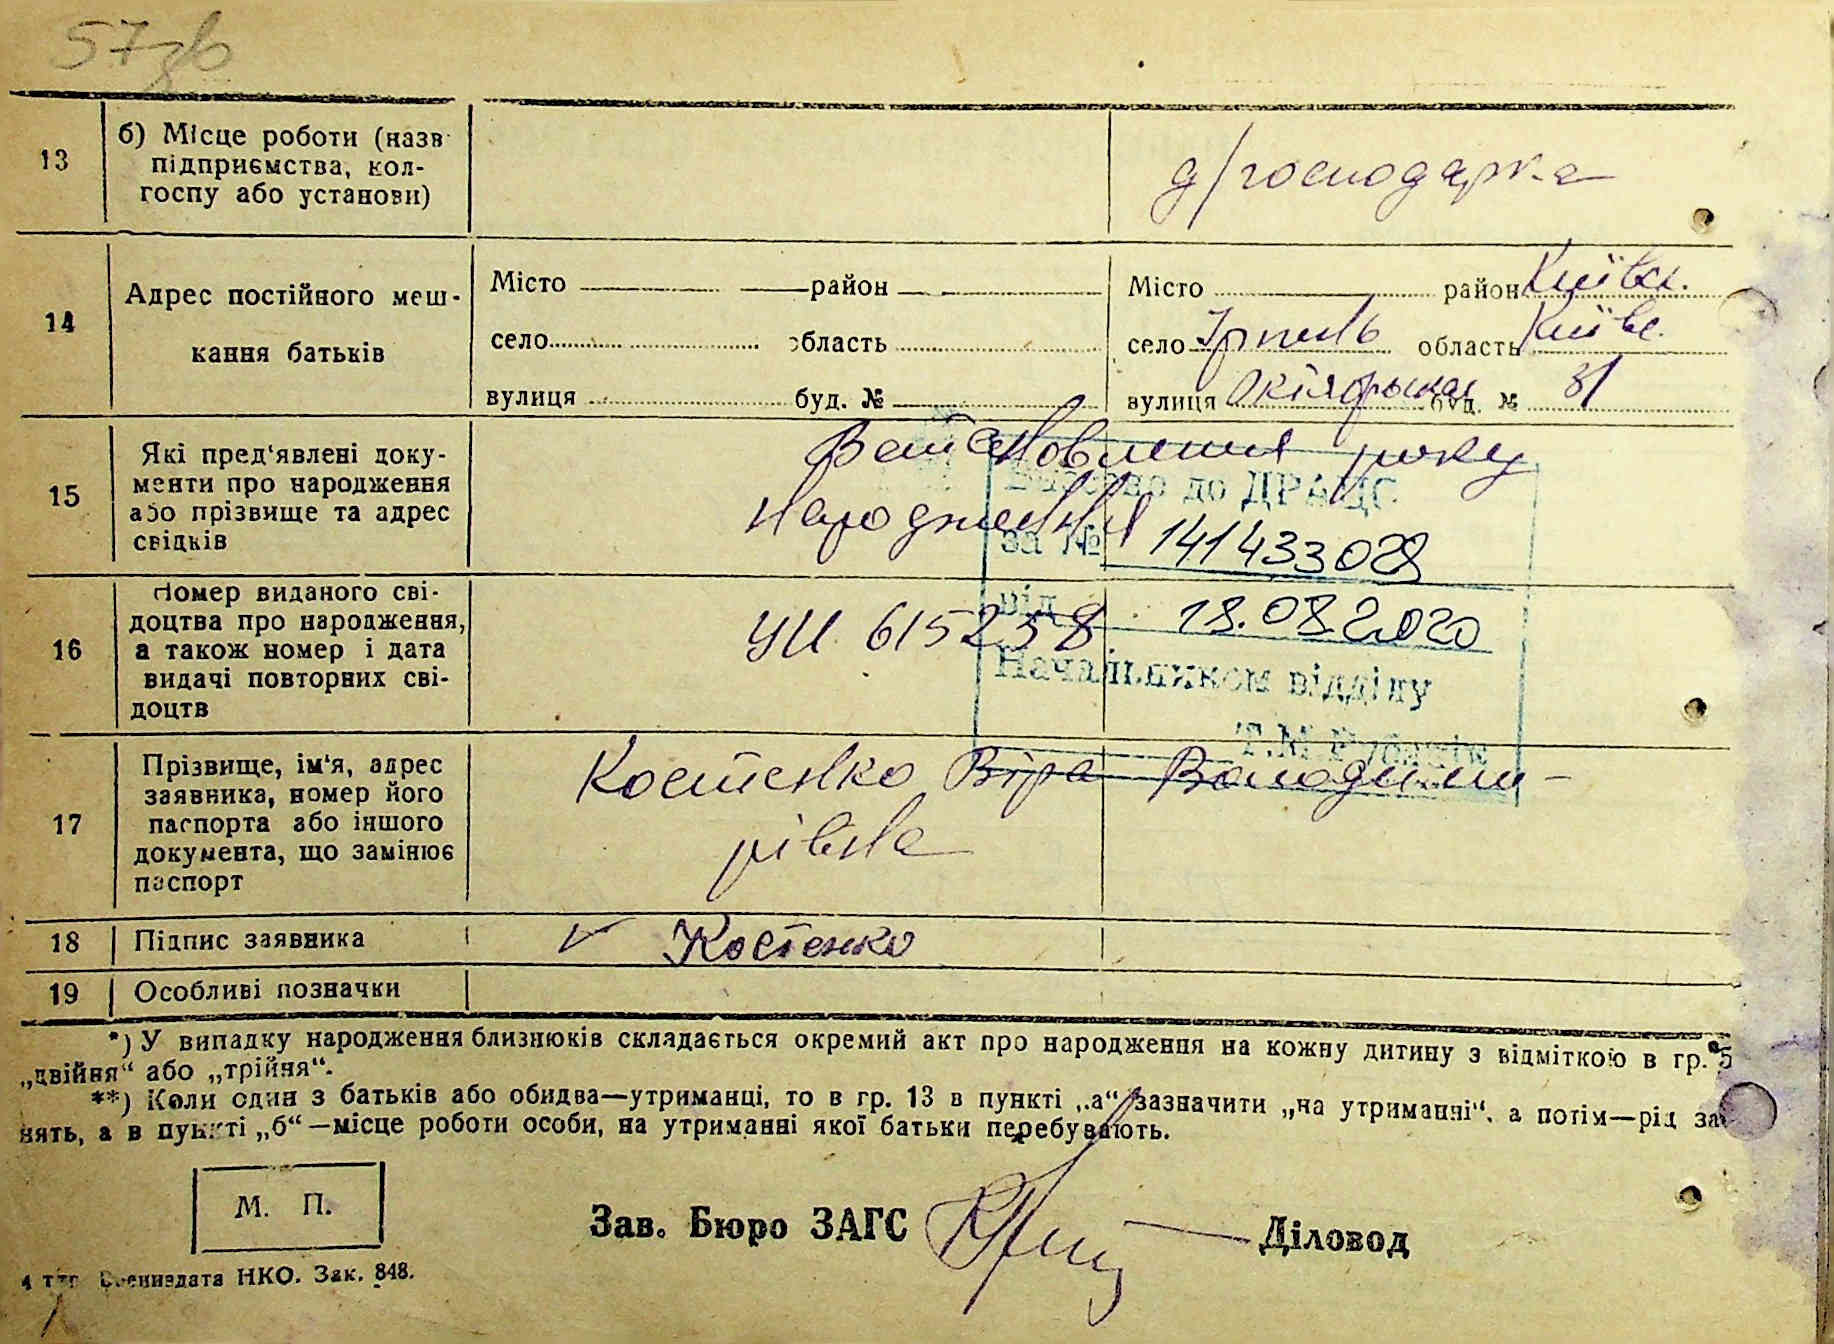 57зв
13 б) Місце роботи (назв
підприємства, кол-
госпу або установи)
д/господарка
14 Адрес постійного меш-
кання батьків
Місто район
село область
вулиця буд. №
Місто район Київськ.
село Ірпень область Київс.
вулиця Октябрьская буд. № 31
15 Які пред'явлені доку-
менти про народження
або прізвище та адрес
свідків
Встановлення року
народження
до ДРАЦС
за № 141433028
від 18.08.2020
Начальником відділу
Т.М.
16 Номер виданого сві-
доцтва про народження,
а також номер і дата
видачі повторних сві-
доцтв
УИ 615258
17 Прізвище, ім'я, адрес
заявника, номер його
паспорта або іншого
документа, що замінює
паспорт
Костенко Віра Володими-
рівна
18 Підпис заявника
Костенко
19 Особливі позначки
*) У випадку народження близнюків складається окремий акт про народження на кожну дитину з відміткою в гр. 5
„двійня“ або „трійня“.
**) Коли один з батьків або обидва—утриманці, то в гр. 13 в пункті „а“ зазначити „на утриманні“, а потім—рід за-
нять, а в пункті „б“—місце роботи особи, на утриманні якої батьки перебувають.
М. П.
Зав. Бюро ЗАГС
Діловод
4 тип. Воениздата НКО. Зак. 848.